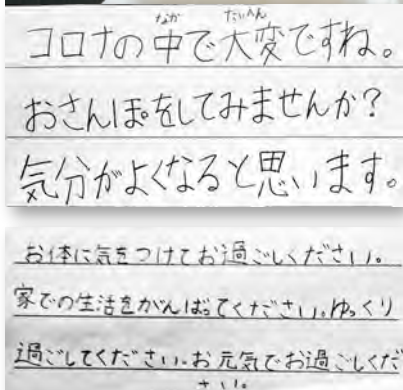 コロナの中で大変ですね。
おさんぽをしてみませんか?
気分がよくなると思います。
お体に気をつけてお過ごしください。
家での生活をがんばってください。ゆっくり
過ごしてください。お元気でお過ごしくだ
さい。